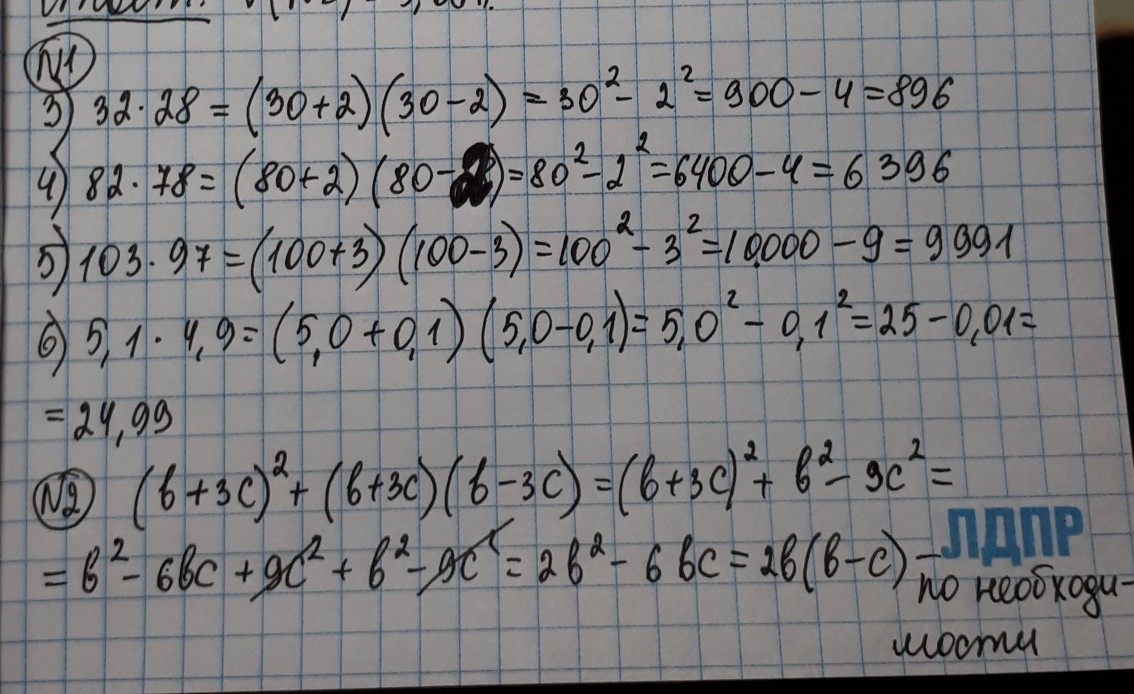 №1
3) 32·28 = (30+2)(30-2) = 30² - 2² = 900 - 4 = 896
4) 82·78 = (80+2)(80-2) = 80² - 2² = 6400 - 4 = 6396
5) 103·97 = (100+3)(100-3) = 100² - 3² = 10000 - 9 = 9991
6) 5,1·4,9 = (5,0+0,1)(5,0-0,1) = 5,0² - 0,1² = 25 - 0,01 =
= 24,99
№2 (в+3с)² + (в+3с)(в-3с) = (в+3с)² + в² - 9с² =
= в² - 6вс + 9с² + в² - 9с² = 2в² - 6вс = 2в(в-с) –
ЛДПР
по необходи-
мости